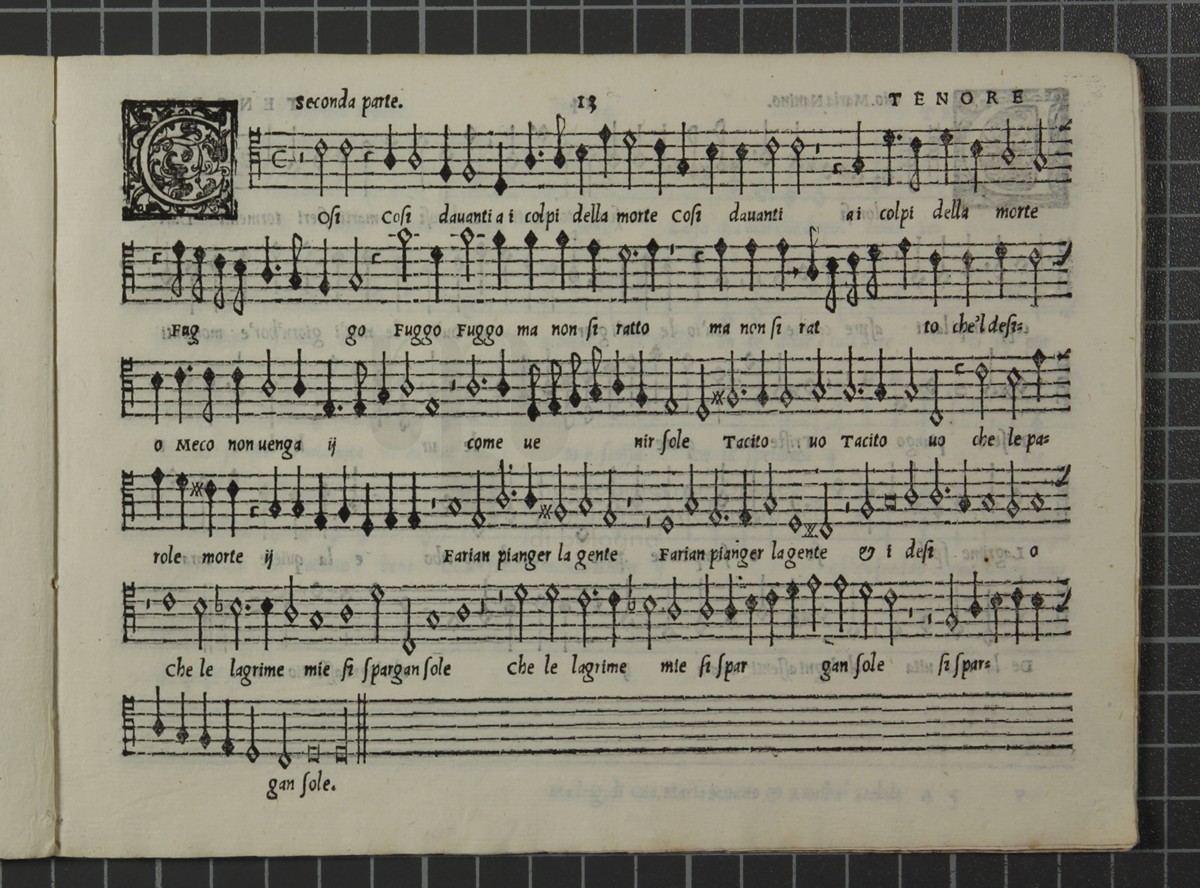 Seconda parte. 13 TENORE
COsi Cosi dauanti a i colpi della morte Cosi dauanti a i colpi della morte
Fug go Fuggo Fuggo ma non si ratto ma non si rat to che'l desi=
o Meco non uenga ij come ue nir sole Tacito uo Tacito uo che le pa=
role morte ij Farian pianger la gente Farian pianger la gente & i desi o
Che le lagrime mie si spargan sole Che le lagrime mie si spar gan sole si spar=
gan sole.